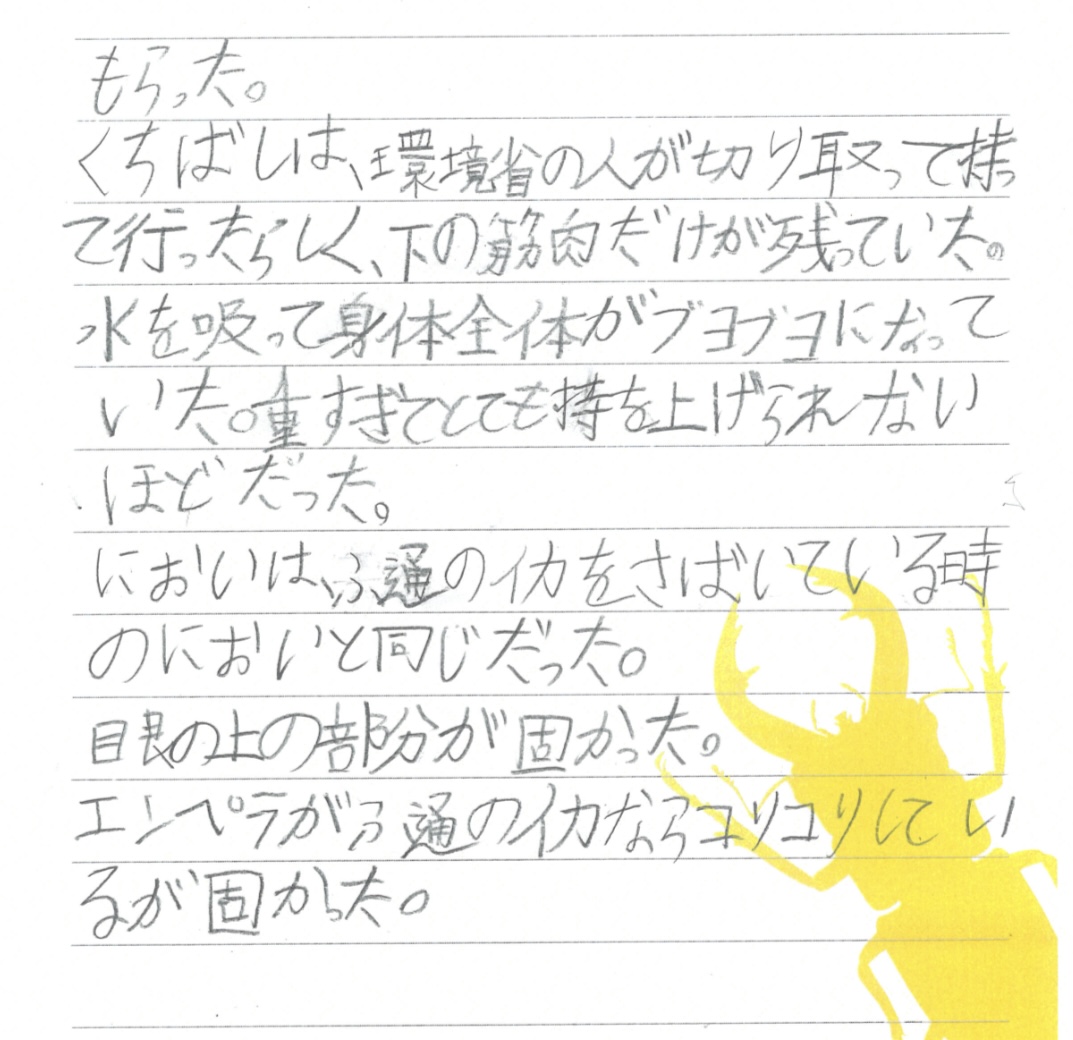 もらった。
くちばしは、環境省の人が切り取って持っ
て行ったらしく、下の筋肉だけが残っていた。の
水を吸って身体全体がブヨブヨになって
いた。重すぎてとても持を上げられない
ほどだった。
においは、ふ通のイカをさばいている時
のにおいと同じだった。
目艮の上の部分が固かった。
エンペラがふ通のイカならコリコリしてい
るが固かった。